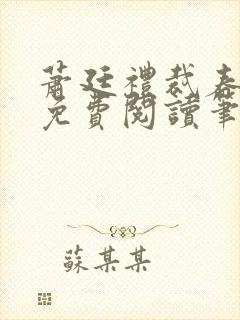 蕭廷禮裁春
免費閱讀筆
蘇某某